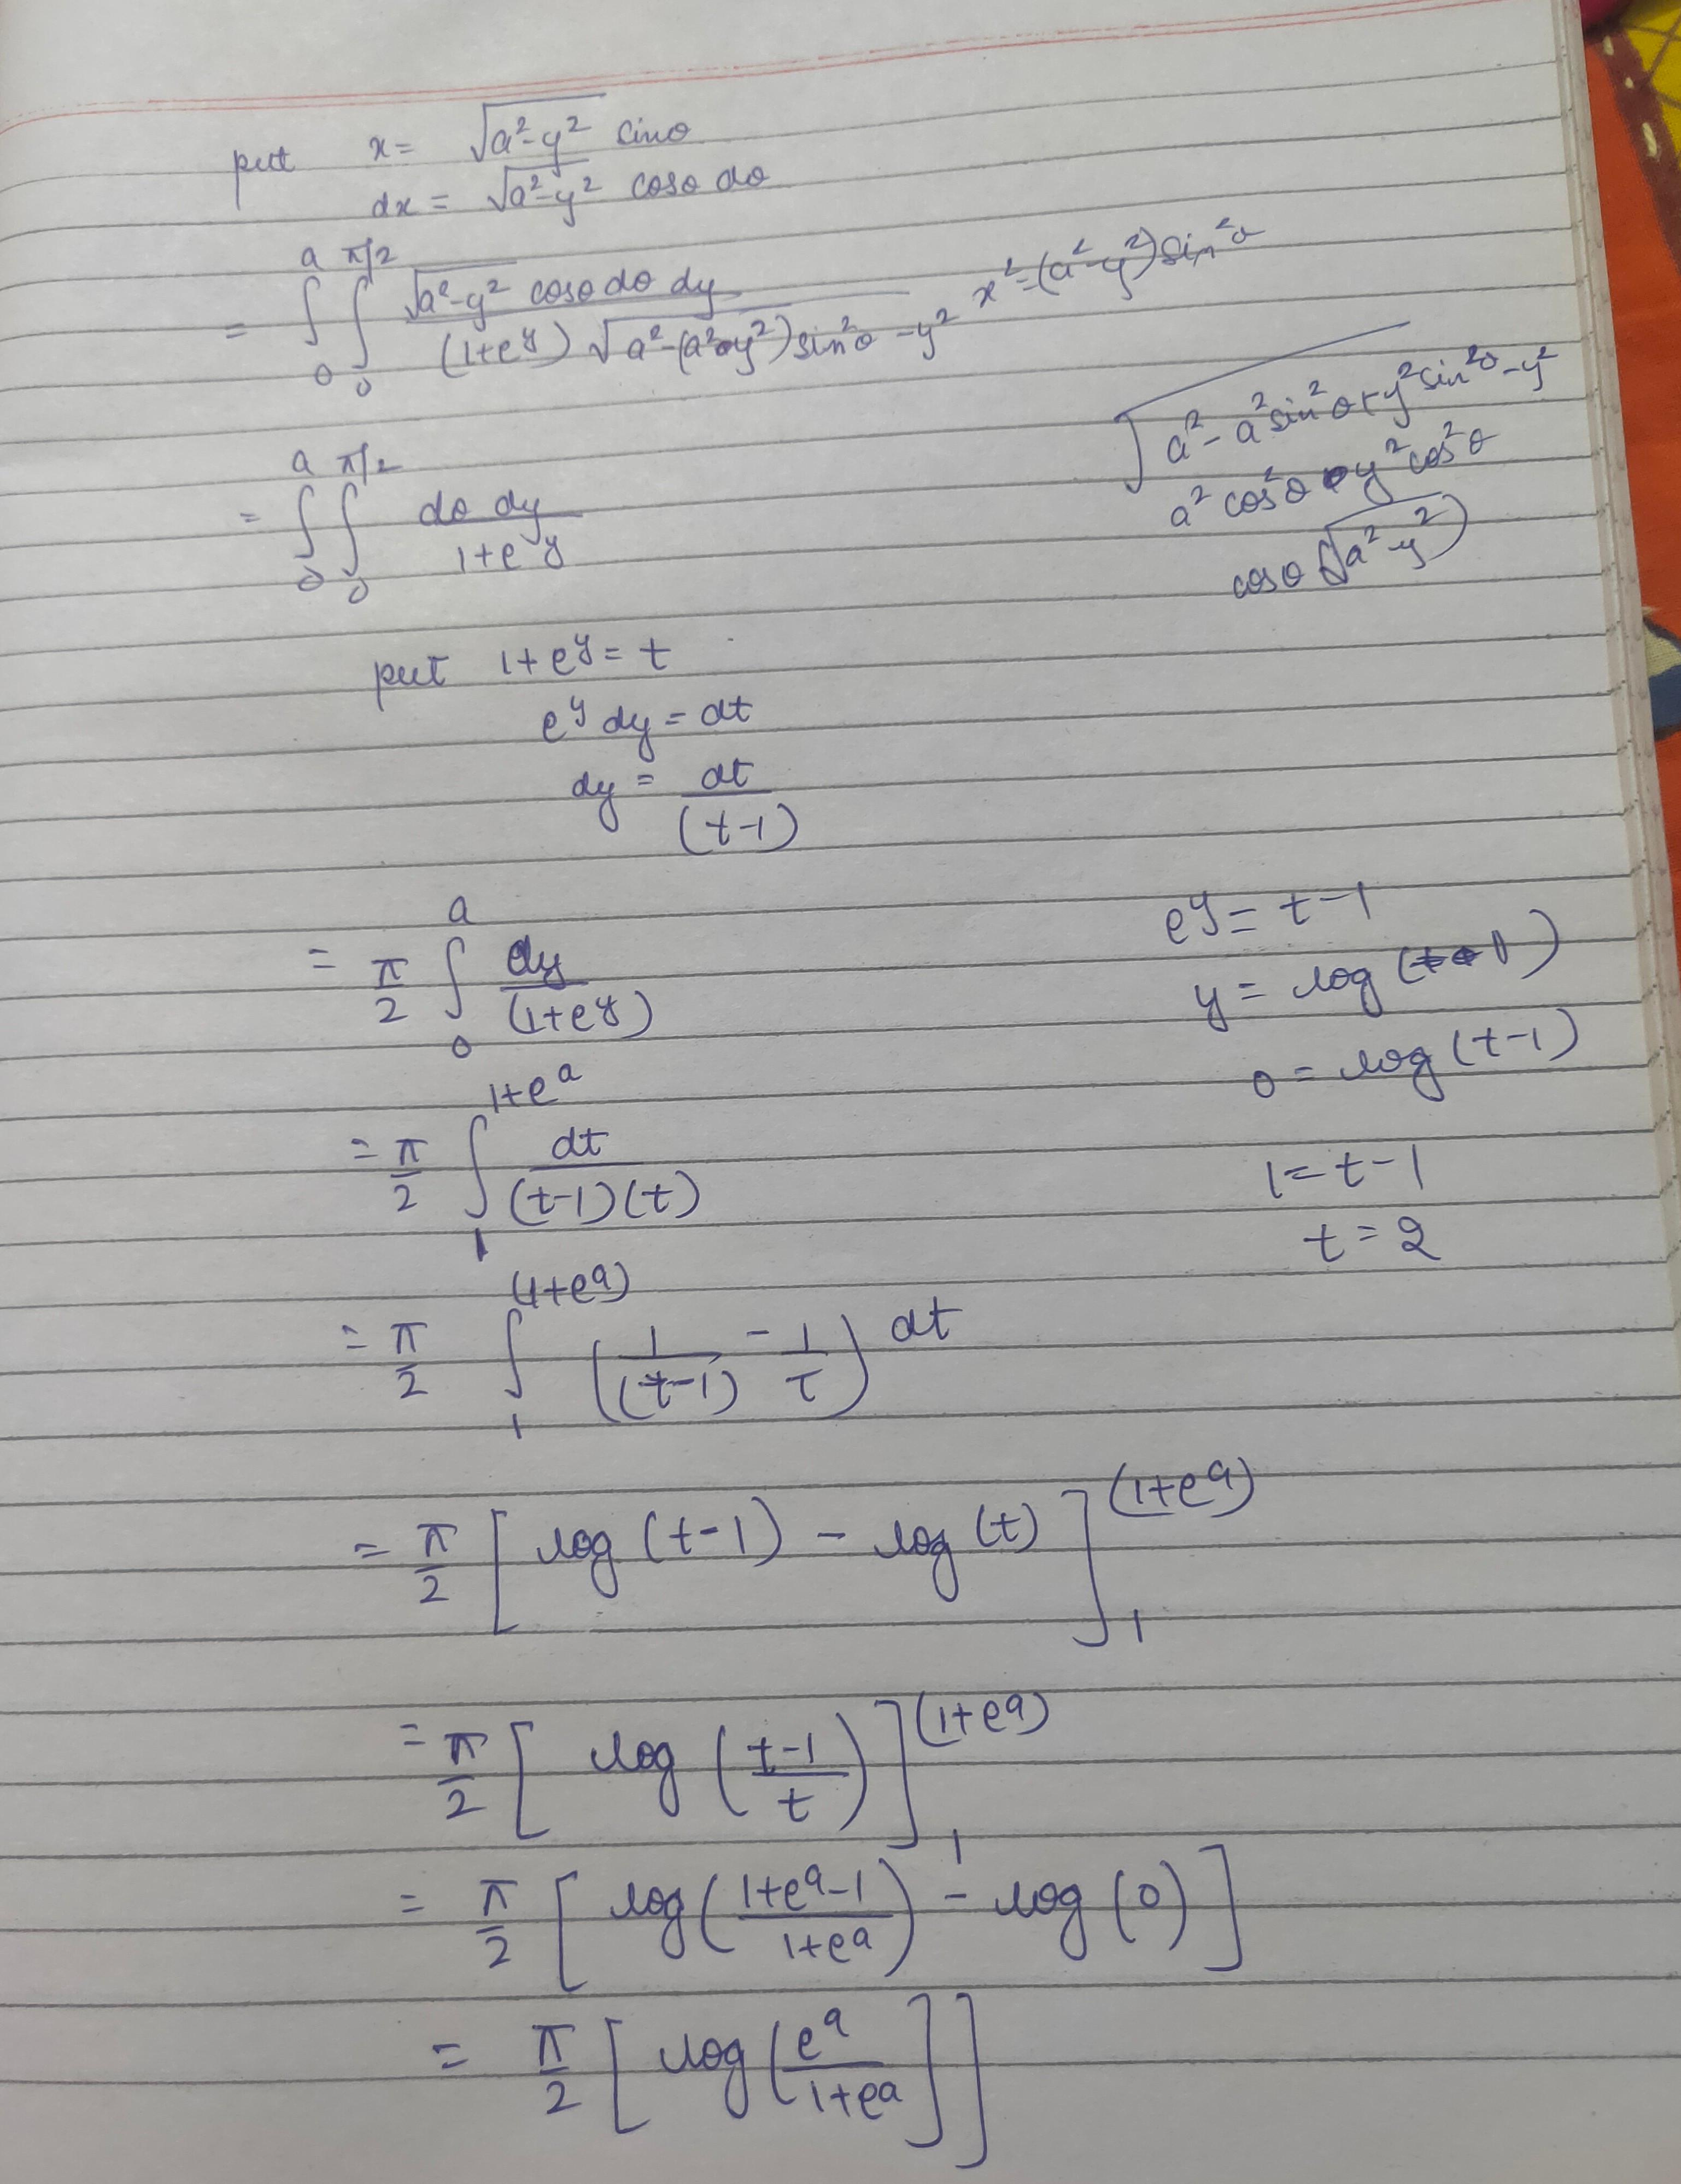 put x = √(a²-y²) sinθ
dx = √(a²-y²) cosθ dθ
= ∫₀^a ∫₀^(π/2) √(a²-y²) cosθ dθ dy / (1+e^y) √(a²-(a²-y²)sin²θ - y²)
x² = (a²-y²) sin²θ
√(a² - a² sin²θ + y² sin²θ - y²)
a² cos²θ - y² cos²θ
cosθ (√(a²-y²))
= ∫₀^a ∫₀^(π/2) dθ dy / 1+e^y
put 1+e^y = t
e^y dy = dt
dy = dt / (t-1)
= π/2 ∫₀^a dy / (1+e^y)
e^y = t-1
y = log (t-1)
0 = log (t-1)
1 = t-1
t = 2
= π/2 ∫₁^(1+e^a) dt / (t-1)(t)
= π/2 ∫₁^(1+e^a) (1/(t-1) - 1/t) dt
= π/2 [log (t-1) - log (t)]₁^(1+e^a)
= π/2 [log (t-1 / t)]₁^(1+e^a)
= π/2 [log (1+e^a-1 / 1+e^a) - log (0)]
= π/2 [log (e^a / 1+e^a]]